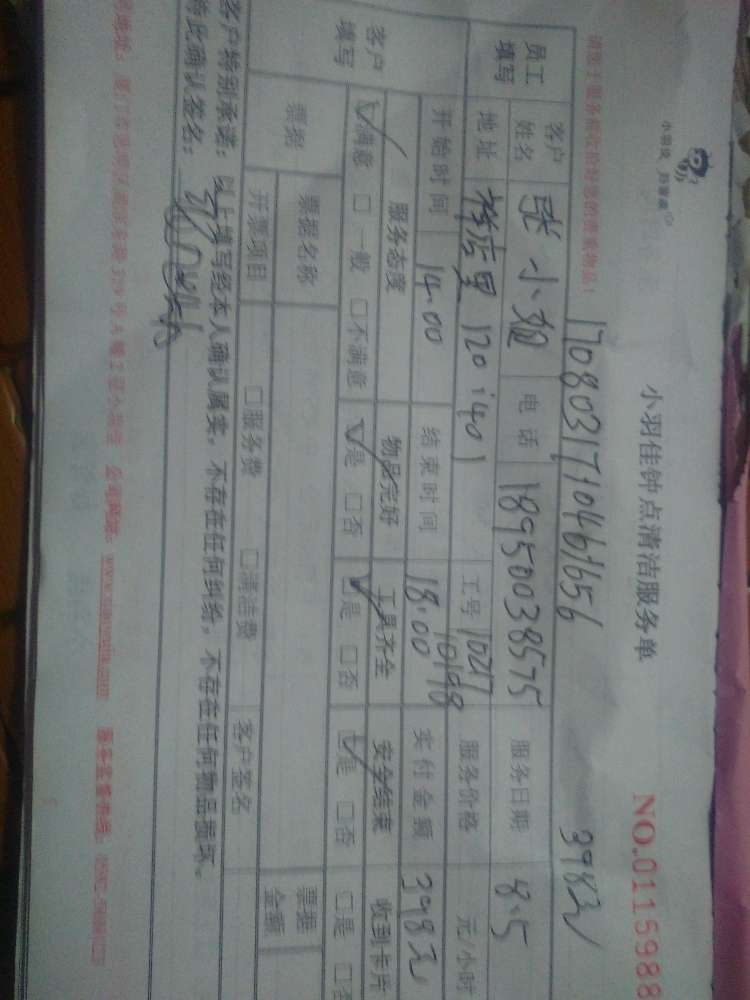 小羽佳钟点清洁服务单
NO.0115988
小羽佳 到家嘉
请您于服务前收拾好您的贵重物品!
398元
员工填写 客户姓名 张小姐 电话 18950038575 服务日期 8.5
地址 120 1401 工号 10217 10198 服务价格 元/小时
客户填写 开始时间 14.00 结束时间 18.00 实付金额 398元
服务态度 物品完好 工具齐全 安全结束 收到卡片
满意 □ 一般 □ 不满意 是 □ 否 是 □ 否 是 □ 否 □ 是 □ 否
票据 票据名称 票据金额
开票项目 □ 服务费 □ 清洁费 客户签名
客户特别承诺:以上填写经本人确认属实,不存在任何纠纷,不存在任何物品损坏。
特此确认签名: